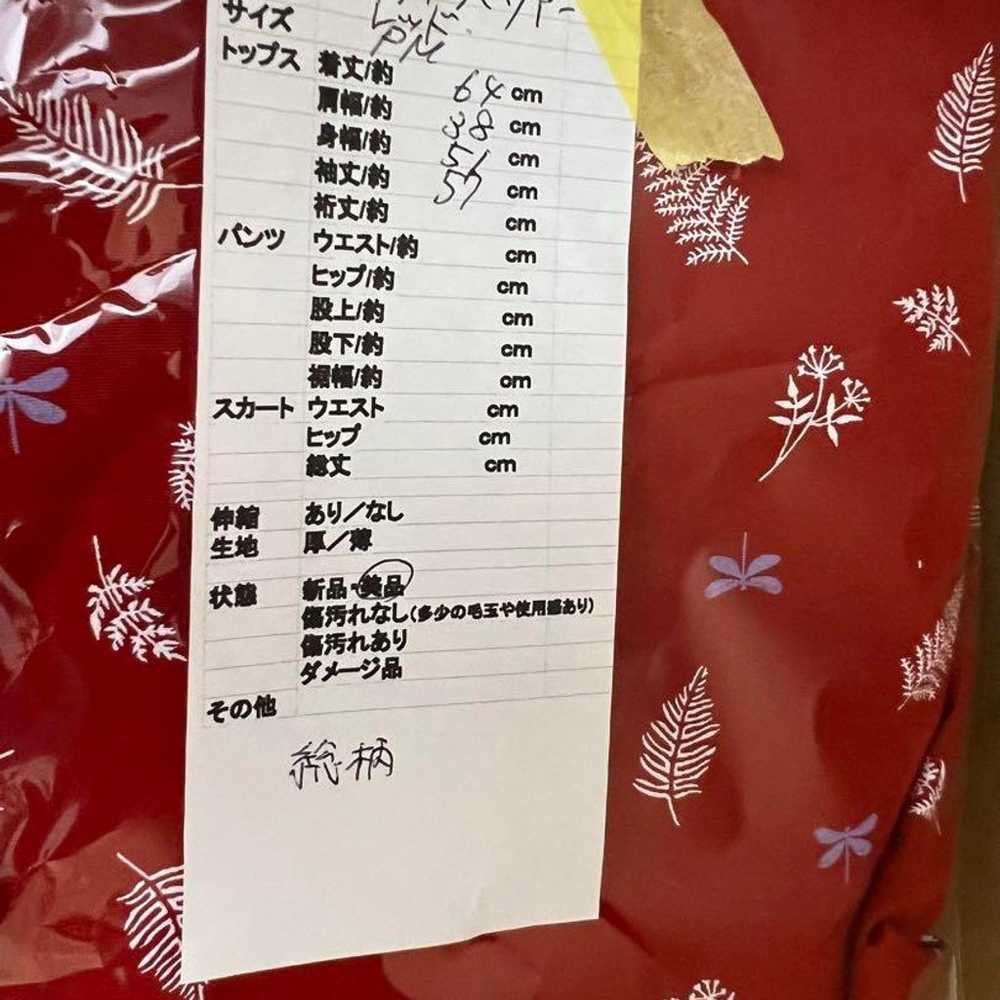 サイズ レッド
PM
トップス 着丈/約 64 cm
肩幅/約 38 cm
身幅/約 51 cm
袖丈/約 57 cm
裄丈/約 cm
パンツ ウエスト/約 cm
ヒップ/約 cm
股上/約 cm
股下/約 cm
裾幅/約 cm
スカート ウエスト cm
ヒップ cm
総丈 cm
伸縮 あり/なし
生地 厚/薄
状態 新品・美品
傷汚れなし(多少の毛玉や使用感あり)
傷汚れあり
ダメージ品
その他
総柄